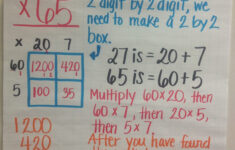 x 65
2 digit by 2 digit, we
need to make a 2 by 2
box.
x 20 7
60 1200 420
5 100 35
27 is = 20 + 7
65 is = 60 + 5
Multiply 60x20, then
60 x 7, then 20x5,
then 5x7.
1200
420
After you have found